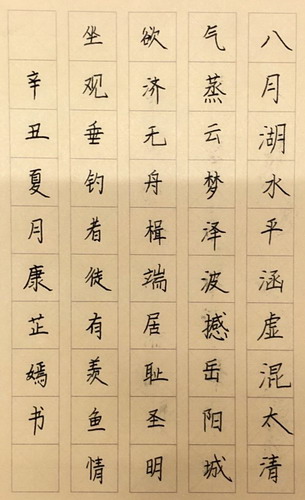 八月湖水平涵虚混太清
气蒸云梦泽波撼岳阳城
欲济无舟楫端居耻圣明
坐观垂钓者徒有羡鱼情
辛丑夏月康芷嫣书